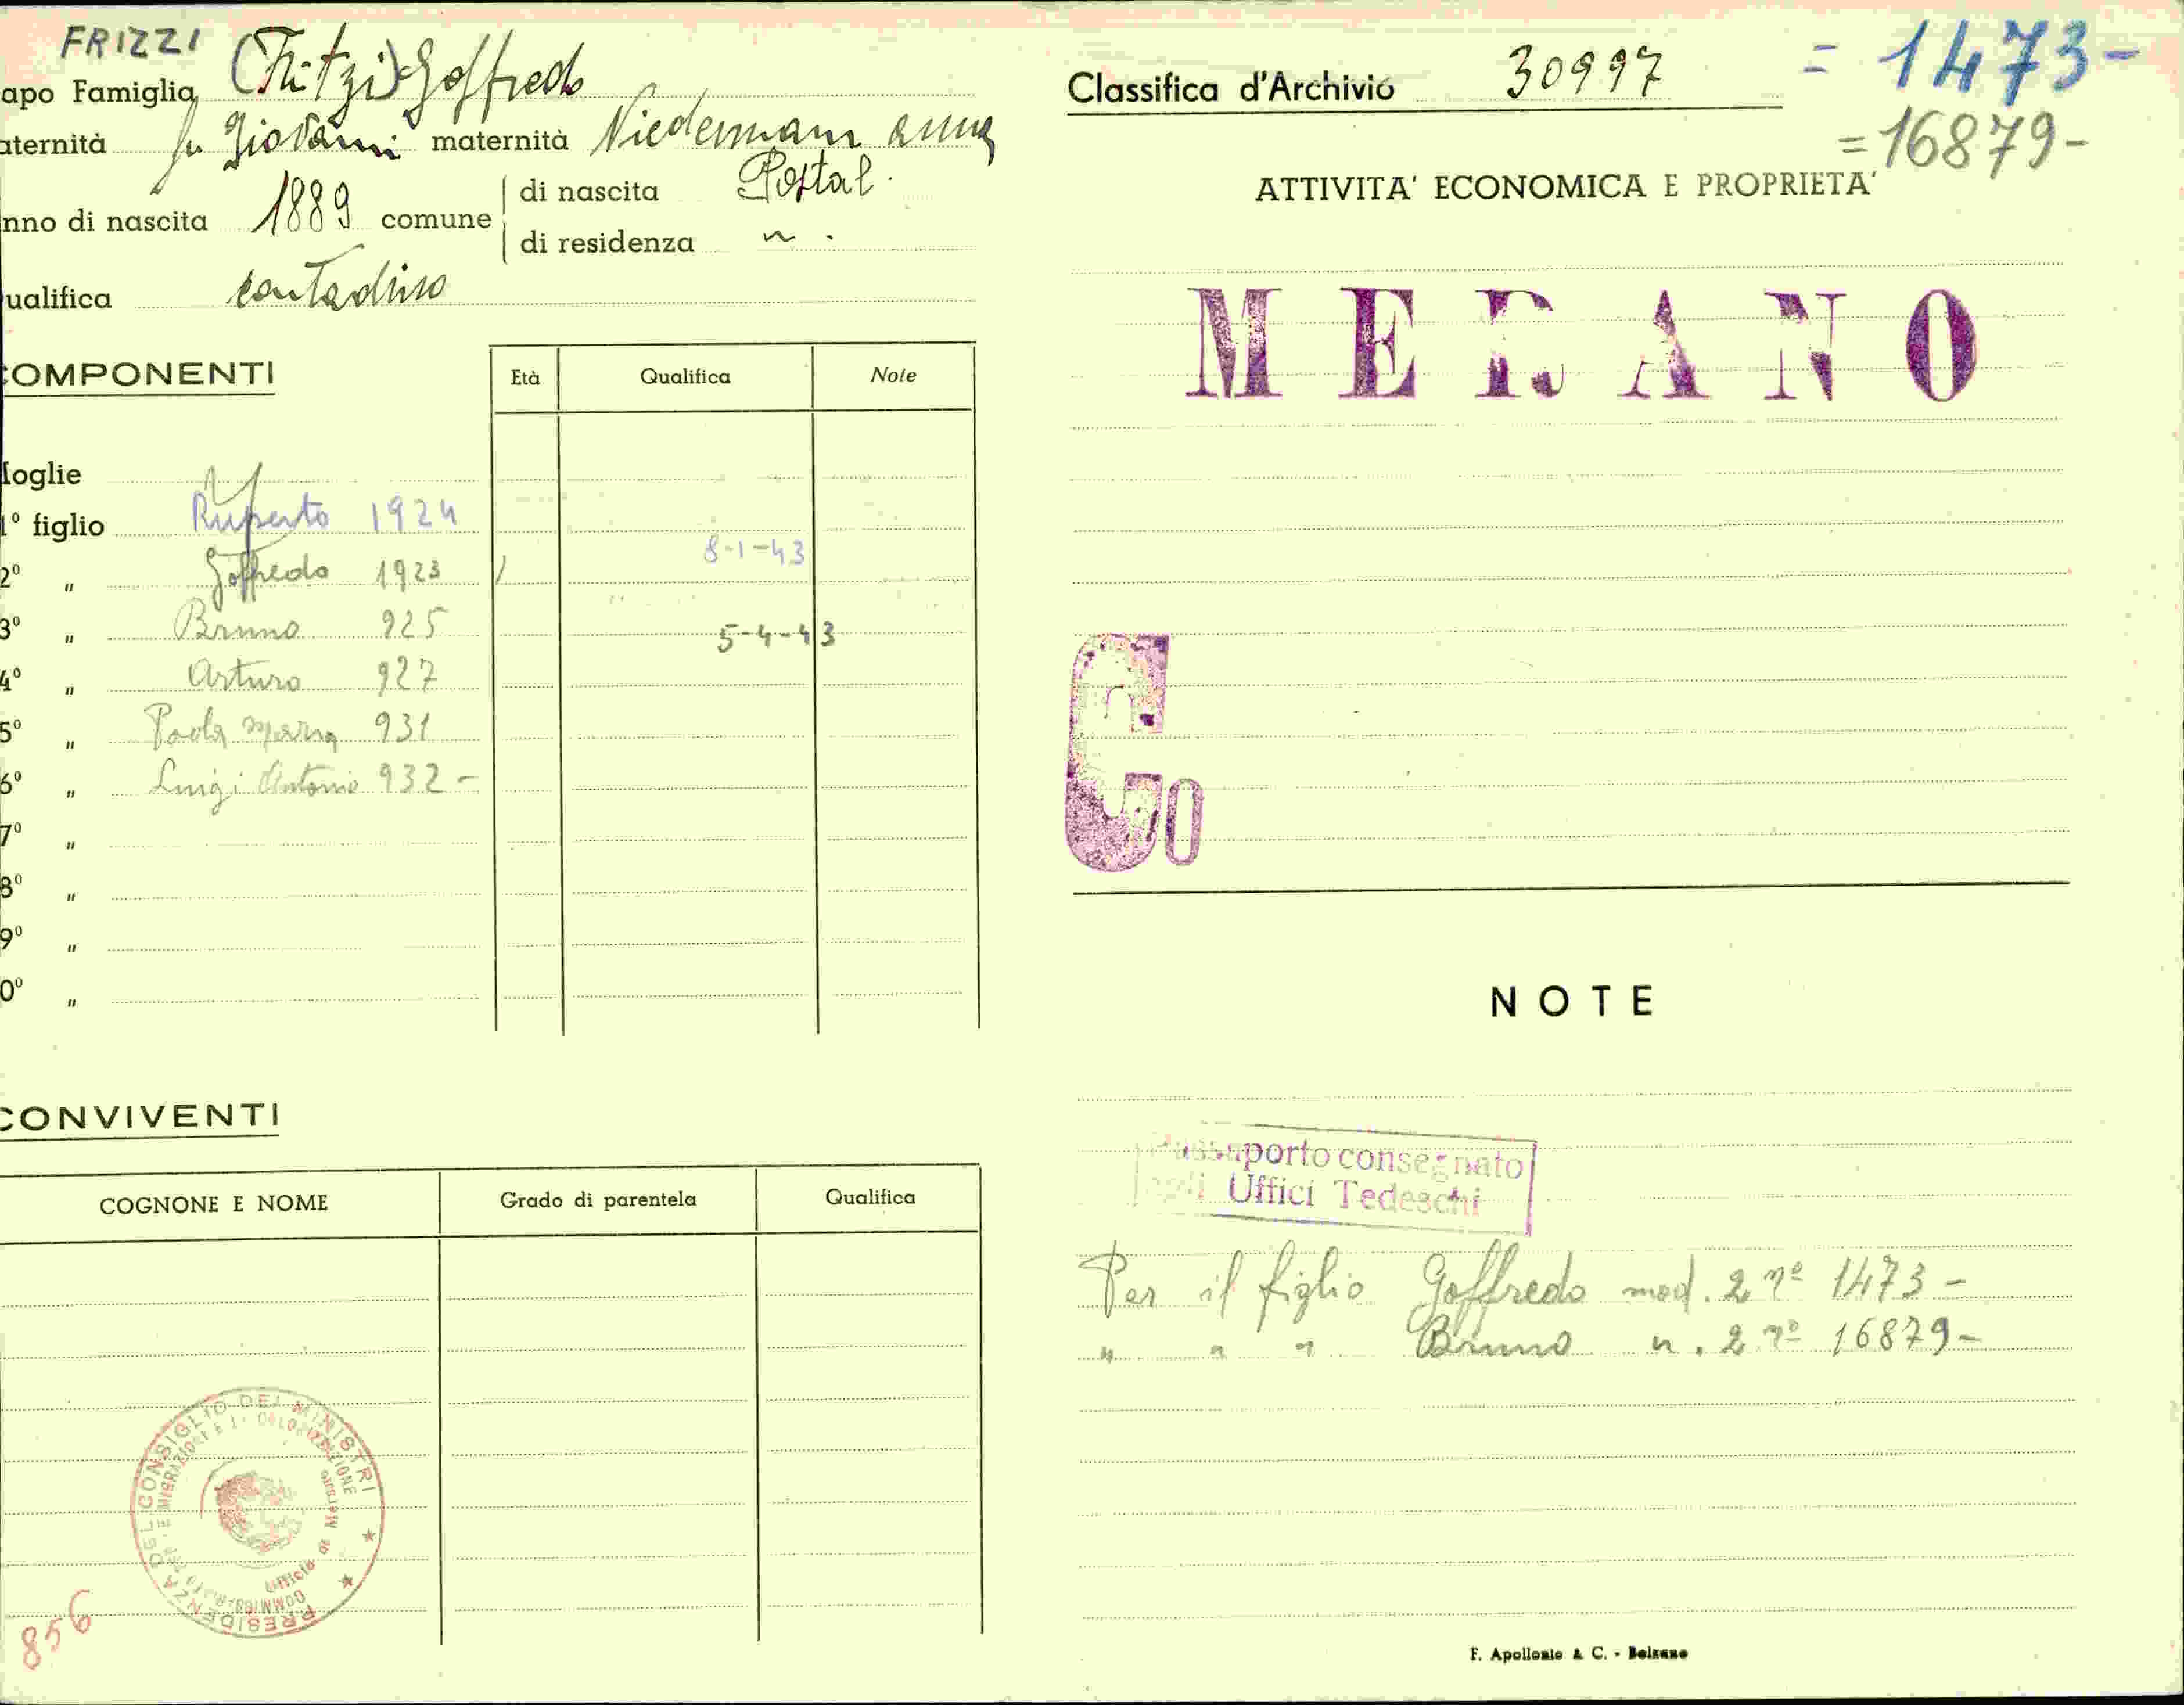 FRIZZI
apo Famiglia (Fritzi) Goffredo
aternità fu Giovanni maternità Niedermann Anna
nno di nascita 1889 comune di nascita Postal.
di residenza " .
ualifica contadino
COMPONENTI
Età Qualifica Note
Moglie
1º figlio Ruperto 1924
8-1-43
2º " Goffredo 1923
3º " Bruno 925 5-4-43
4º " Arturo 927
5º " Paola Maria 931
6º " Luigi Antonio 932 -
7º "
8º "
9º "
0º "
CONVIVENTI
COGNONE E NOME Grado di parentela Qualifica
PRESIDENZA DEL CONSIGLIO DEI MINISTRI
856
Classifica d'Archivio 30997 = 1473-
= 16879-
ATTIVITA' ECONOMICA E PROPRIETA'
MERANO
Co
NOTE
Passaporto consegnato
agli Uffici Tedeschi
Per il figlio Goffredo mod. 2 nº 1473 -
" " " Bruno " . 2 nº 16879-
F. Apollonio & C. - Bolzano